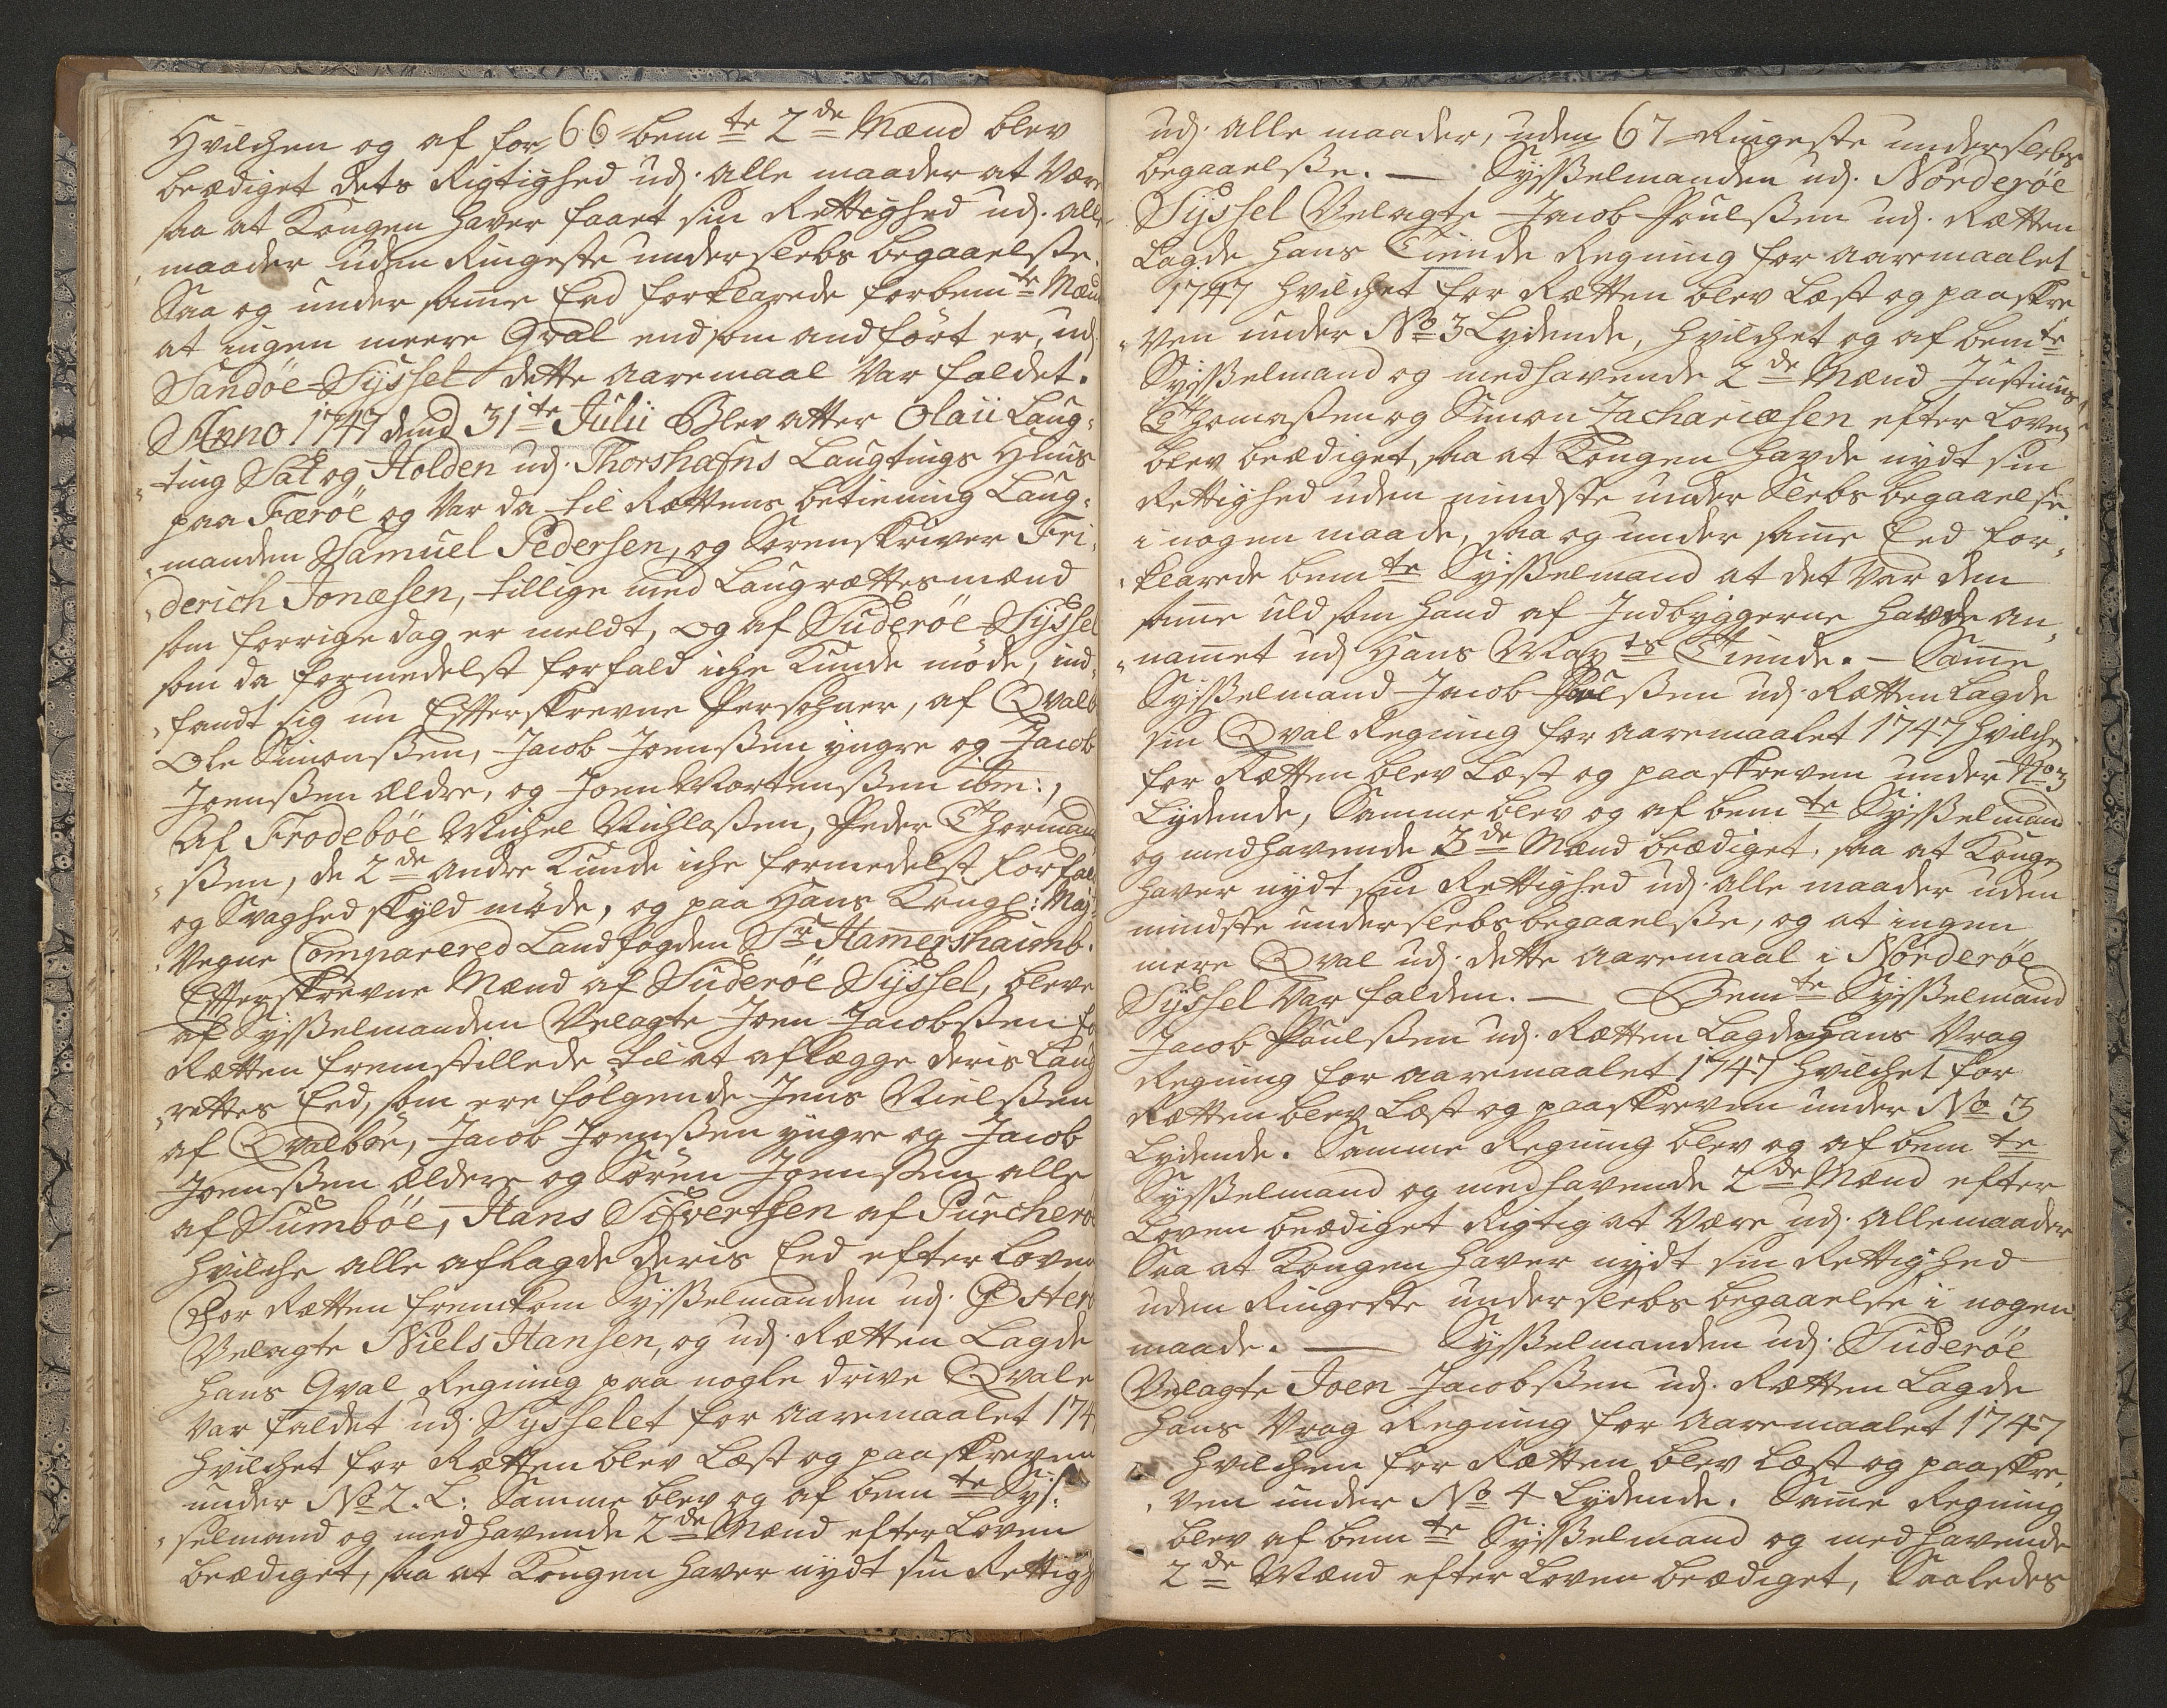 66
Hvilchen og af for bem te 2 de Mænd blev
beædiget dets Rigtighed udj. alle maader at Være
saa at Kongen haver faaet sin Rettighed udj. alle
maader uden Ringeste underslebs begaaelse.
Saa og under same Eed forklarede forbem te Mænd
at ingen meere Qval end som andført er, udj
Sandöe-Syssel dette aaremaal Var faldet.
Anno 1747 dend 31te Julii Blev atter Olaii Laug-
ting Sat og Holden udj. Thorshafns Laugtings Huus
paa Færöe og Var da til Rættens betiening Laug-
manden Samuel Pedersen, og Sorenskriver Fri-
derich Jonæsen, tillige med Laugrættesmænd
som forrige dag er meldt, og af Suderöe-Syssel
som da formedelst forfald iche Kunde møde, ind-
fandt sig nu Effterskrevne Persohner, af Qvalb
Ole Simonssen, Jacob Joenssen yngre og Jacob
Joenssen ældre, og Joen Mortenssen ibm:,
Af Frodeböe Michel Michlassen, Peder Thormand
ssen, de 2 de andre Kunde iche formedelst forfald
og Svaghed skyld møde, og paa Hans Kongl: May:
Vegne Comparered Landfogden Sr Hamershaimb.
Effterskrevne Mænd af Suderöe Syssel, bleve
af Sysselmanden Velagte Joen Jacobssen for
Rætten fremstillede til at aflægge deris Laug
rettes Eed, som ere følgende Jens Nielssen
af Qvalböe, Jacob Joenssen yngre og Jacob
Joenssen ældere og Sören Joenssen alle
af Sumböe, Hans Sifvertsen af Purcherö
hvilche alle aflagde deris Eed efter Loven
For Rætten fremkom Sysselmanden udj. Österö
Velagte Niels Hansen, og udj. Rætten Lagde
hans Qval Regning paa nogle drive Qvale
Var faldet udj. Sysselet for aaremaalet 174
hvilchet for Rætten blev Læst og paaskreven
under No 2. L: Samme blev og af bem te Sys-
selmand og medhavende 2 de Mænd efter Loven
beædiget, saa at Kongen haver nydt sin Rettigh
67
udj. alle maader, uden Ringeste underslebs
begaaelsse. — Sysselmanden udj. Norderöe
Syssel Velagte Jacob Poulssen udj. Rætten
Lagde hans Tiende Regning for aaremaalet
1747 hvilchet for Rætten blev Læst og paaskre
ven under No 3 Lydende, hvilchet og af bem te
Sysselmand og medhavende 2 de Mænd Justinus
Thomassen og Simon Zachariæsen efter Loven
blev beædiget, saa at Kongen havde nydt sin
Rettighed uden mindste under Slebs begaaelse
i nogen maade, saa og under same Eed for-
klarede bem te Sysselmand at det Var den
same uld som hand af Indbyggerne havde an-
namet udj Hans May ts Tiende. — Same
Sysselmand Jacob Poulssen udj. Rætten Lagde
sin Qval Regning for aaremaalet 1747 hvilche
for Rætten blev Læst og paaskreven under No 3
Lydende, Samme blev og af bem te Sysselmand
og medhavende 3 de Mænd beædiget, saa at Kongen
haver nydt sin Rettighed udj. alle maader uden
mindste underslebs begaaelsse, og at ingen
mere Qval udj. dette aaremaal i Norderöe
Syssel Var falden. — Bem te Sysselmand
Jacob Poulssen udj. Rætten Lagde hans Vrag
Regning for aaremaalet 1747 hvilchet for
Rætten blev Læst og paaskreven under No 3
Lydende. Samme Regning blev og af bem te
Sysselmand og medhavende 2 de Mænd efter
Loven beædiget Rigtig at Være udj. alle maader
Saa at Kongen haver nydt sin Rettighed
uden Ringeste underslebs begaaelse i nogen
maade. — Sysselmanden udj. Suderöe
Velagte Joen Jacobssen udj. Rætten Lagde
hans Vrag Regning for aaremaalet 1747
hvilchen for Rætten blev Læst og paaskre
ven under No 4 Lydende. Same Regning
blev af bem te Sysselmand og medhavende
2 de Mænd efter Loven beædiget, Saaledes